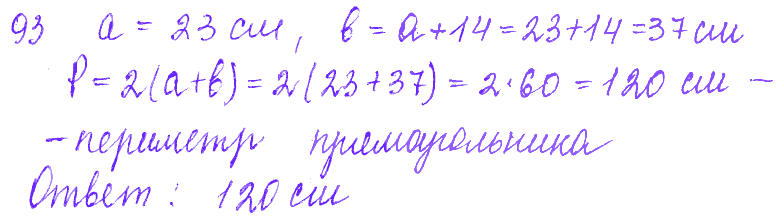 93 a = 23 см, в = а + 14 = 23 + 14 = 37 см
P = 2(а+в) = 2(23+37) = 2·60 = 120 см –
– периметр прямоугольника
Ответ: 120 см